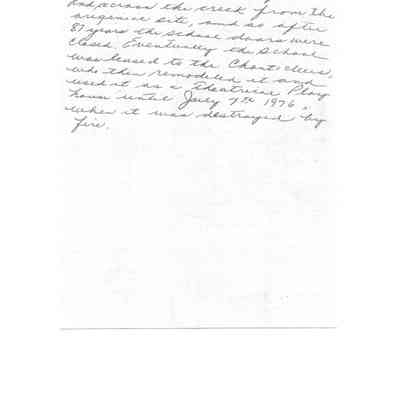 and across the creek from the
orginal site, and so after
87 years the school doors were
closed. Eventually the School
was leased to the Chanticleers,
who then remodeled it and
used it as a Theatrical Play
house until July 4th 1976
when it was destroyed by
fire.